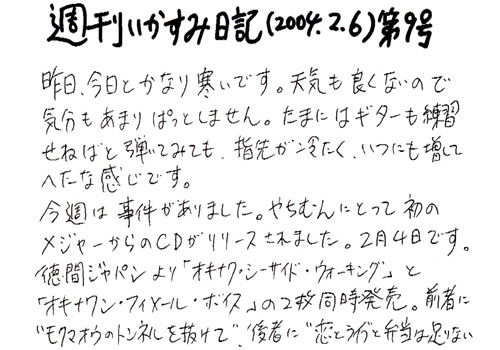 週刊いかすみ日記(2004.2.6)第9号
昨日、今日とかなり寒いです。天気も良くないので
気分もあまりぱっとしません。たまにはギターも練習
せねばと弾いてみても、指先が冷たく、いつにも増して
へたな感じです。
今週は事件がありました。やちむんにとって初の
メジャーからのCDがリリースされました。2月4日です。
徳間ジャパンより「オキナワ・シーサイド・ウォーキング」と
「オキナワン・フィメール・ボイス」の2枚同時発売。前者に
"モクマオウのトンネルを抜けて"、後者に"恋とラヂと弁当は足りない